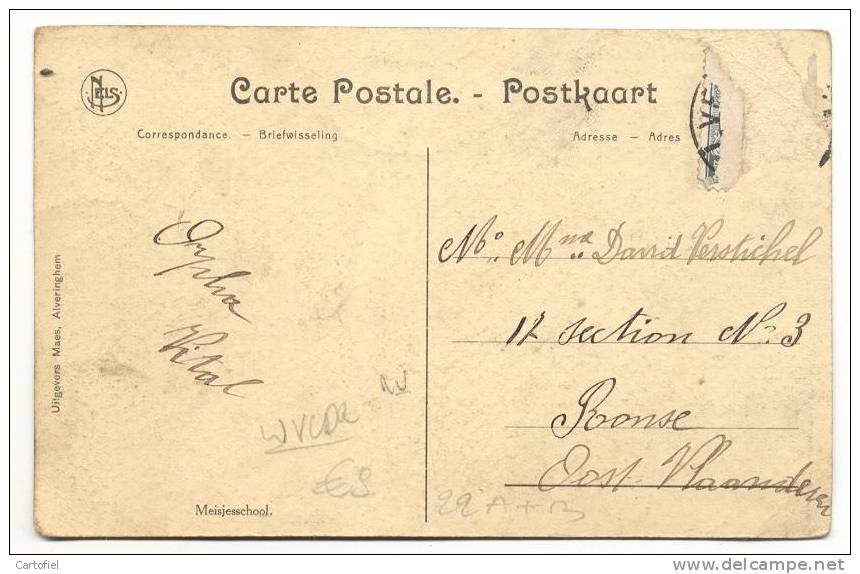 NELS
Carte Postale. - Postkaart
Correspondance. — Briefwisseling
Adresse — Adres
AVE
Uitgevers Maes, Alveringhem
Orpha
Vital
Mr. Mna David Verstichel
12 section No. 3
Ronse
Oost Vlaanderen
WVCDR
€8
22 A + B
Meisjesschool.
Cartofiel
www.delcampe.net